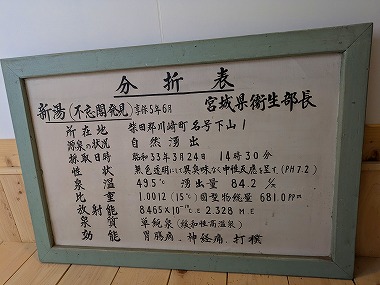 分析表
新湯(不忘閣発見)享保5年6月 宮城県衛生部長
所在地 柴田郡川崎町名号下山1
源泉の状況 自然湧出
採取日時 昭和33年3月24日 14時30分
性状 無色透明にして異臭味なく中性反應を呈す(PH7.2)
泉温 49.5℃ 湧出量 84.2ℓ/分
比重 1.0012(15℃)固型物総量 681.0ppm
放射能 8465×10⁻¹⁰ℂ 2.328 M.E
泉質 単純泉(緩和性高温泉)
効能 胃腸病、神経痛、打撲